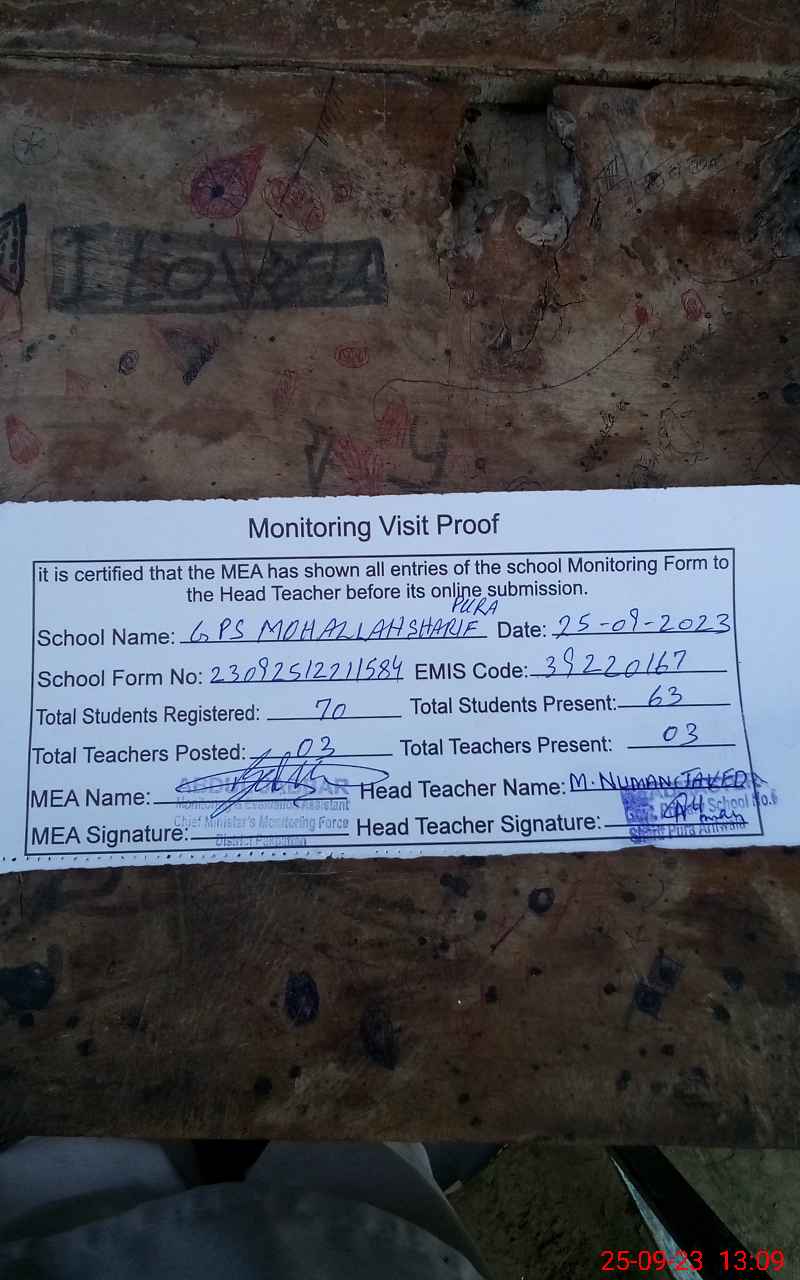 I LOVE
Monitoring Visit Proof
it is certified that the MEA has shown all entries of the school Monitoring Form to
the Head Teacher before its online submission.
School Name: GPS MOHALLAH SHARIF PURA Date: 25-09-2023
School Form No: 23092512211584 EMIS Code: 39220167
Total Students Registered: 70 Total Students Present: 63
Total Teachers Posted: 03 Total Teachers Present: 03
MEA Name: Head Teacher Name: M. NUMAN JAVED
Monitoring & Evaluation Assistant
MEA Signature: Chief Minister's Monitoring Force Head Teacher Signature:
School No.6
25-09-23 13:09